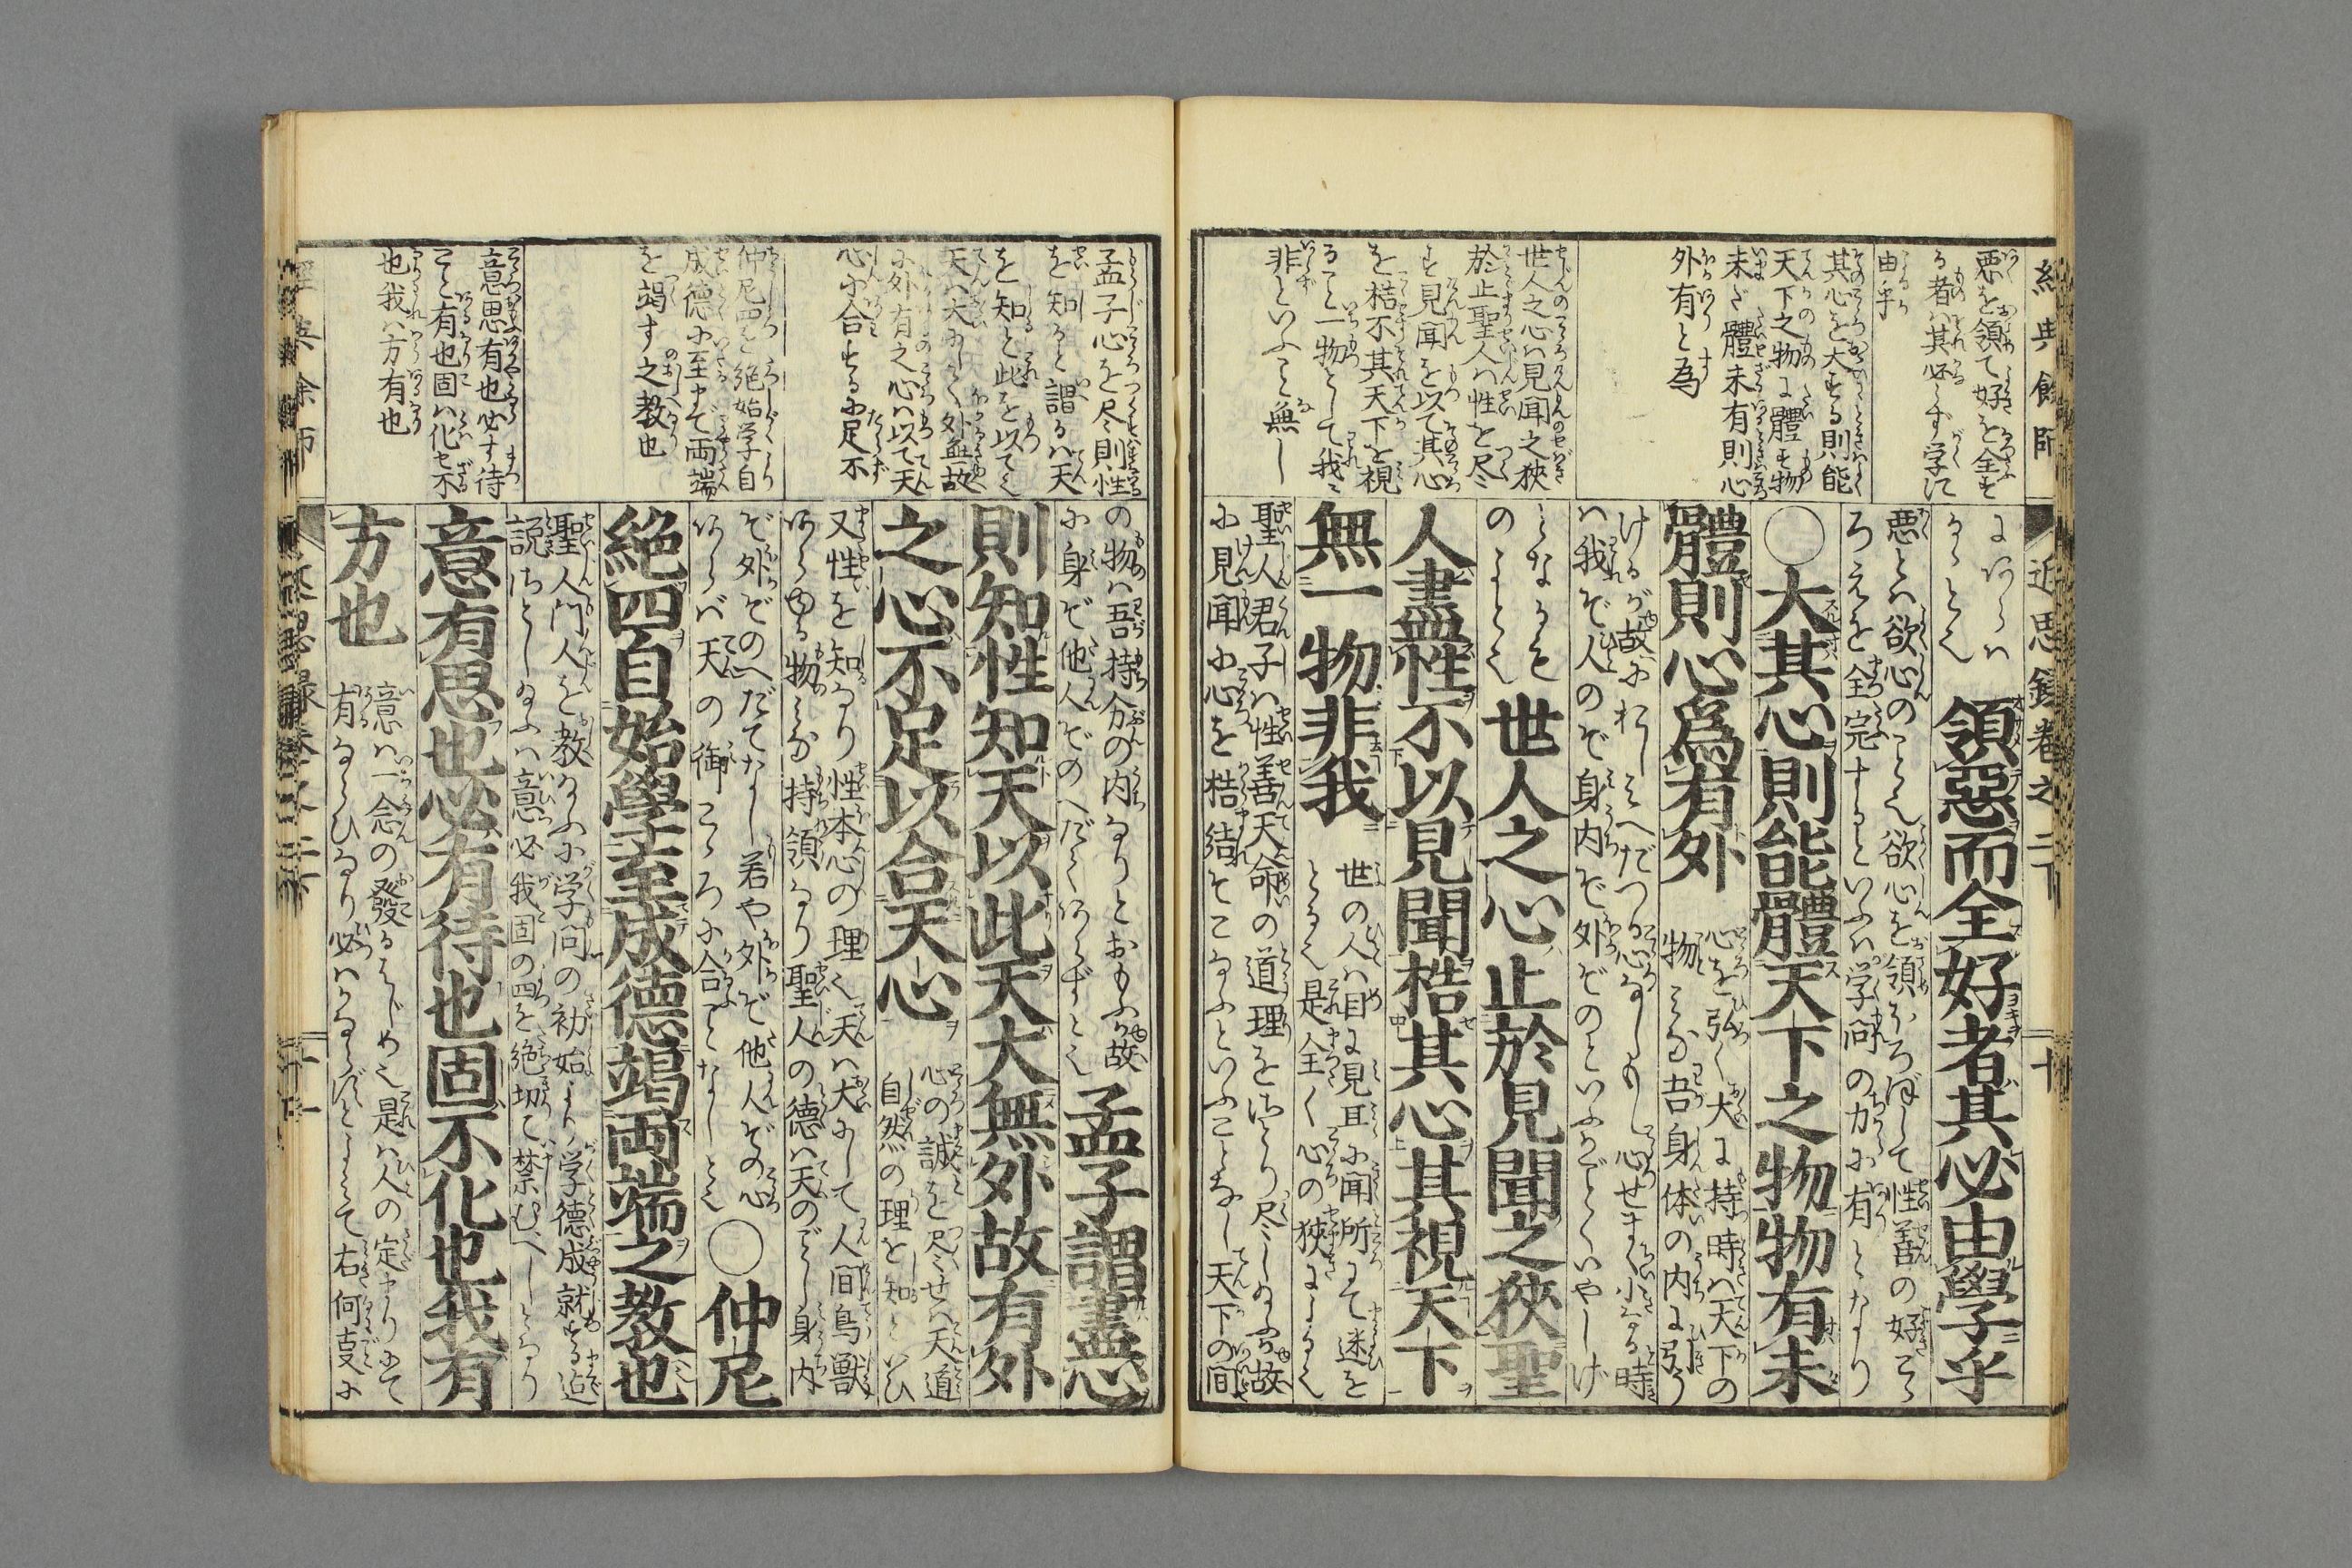 經典餘師
近思録巻之二下
十
悪を領て好を全す
る者ハ其必らず学に
由乎
其心を大する則能
天下之物に體す物
未だ體未有則心
外有と為
世人之心ハ見聞之狹
於止聖人ハ性を尽
す見聞を以て其心
を梏不其天下を視
ること一物として我に
非といふこと無し
領惡而全好者其必由學乎
悪とハ欲心のこと也欲心を領ほろぼして性善の好こゝ
ろえを全完するといふハ学問の力に有となり
○大其心則能體天下之物物有未
體則心爲有外
心を弘く大に持時ハ天下の
物みな吾身体の内に引う
けるが故にわれしこへだつる心なしもし心せまく小なる時
ハ我ぞ人のぞ身内ぞ外ぞのといふがごとくいやしげ
となるを
のこと也
世人之心止於見聞之狹聖
人盡性不以見聞梏其心其視天下
無一物非我
世の人ハ目に見耳に聞所にて迷を
とる也是全く心の狹による也
聖人君子ハ性善天命の道理をさとり尽しゐ給ふ故
に見聞に心を梏結そこなふといふことなし天下の間
孟子心を尽則性
を知ると謂るハ天
を知と此を以て也
天ハ大にして外無故
に外有之心ハ以て天
心に合するに足不
仲尼四を絶始学自
成徳に至まで両端
を竭す之教也
意思有也必す待
こと有也固ハ化せ不
也我ハ方有也
の物ハ吾持分の内なりとおもふ故
に身ぞ他人ぞのへだてあらずと也
孟子謂盡心
則知性知天以此天大無外故有外
之心不足以合天心
心の誠を尽せハ天道
自然の理を知といひ
又性を知なり性本心の理也天ハ大にして人間鳥獣
あらゆる物みな持領なり聖人の徳ハ天のごとし身内
ぞ外ぞのへだてなし若や外ぞ他人ぞの心
あらバ天の御こゝろに合ことなしと也
○仲尼
絶四自始學至成德竭両端之教也
聖人門人を教給ふに学問の初始より学徳成就する迄
説さとし給ふハ意必我固の四を絶切て禁むべしとなり
意有思也必有待也固不化也我有
方也
意ハ一念の發るはじめ也是ハ人の定まりにて
有ならひなり必ハかならずとよみて右何支に